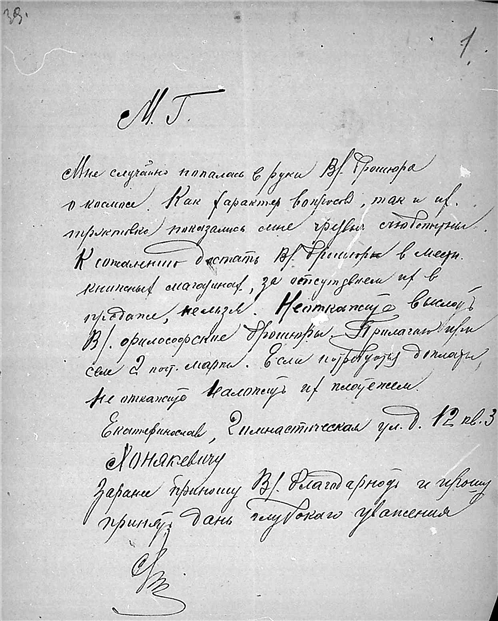 39.
1
М. Г.
Мне случайно попалась в руки Вǀ. брошюра
о космосе. Как характер вопросов, так и их
трактовка показались мне чрезвыч. любопытны.
К сожалению достать Вǀ. брошюры в местн.
книжных магазинах, за отсутствием их в
продаже, нельзя. Не откажите выслать
Вǀ. философские брошюры. Прилагаю при
сем 2 пост. марки. Если потребуется доплата,
не откажите наложить их платежем
Екатеринослав, Гимнастическая ул. д. 12 кв. 3
Хонякевичу
Заране приношу Вǀ. благодарность и прошу
принять дань глубокого уважения